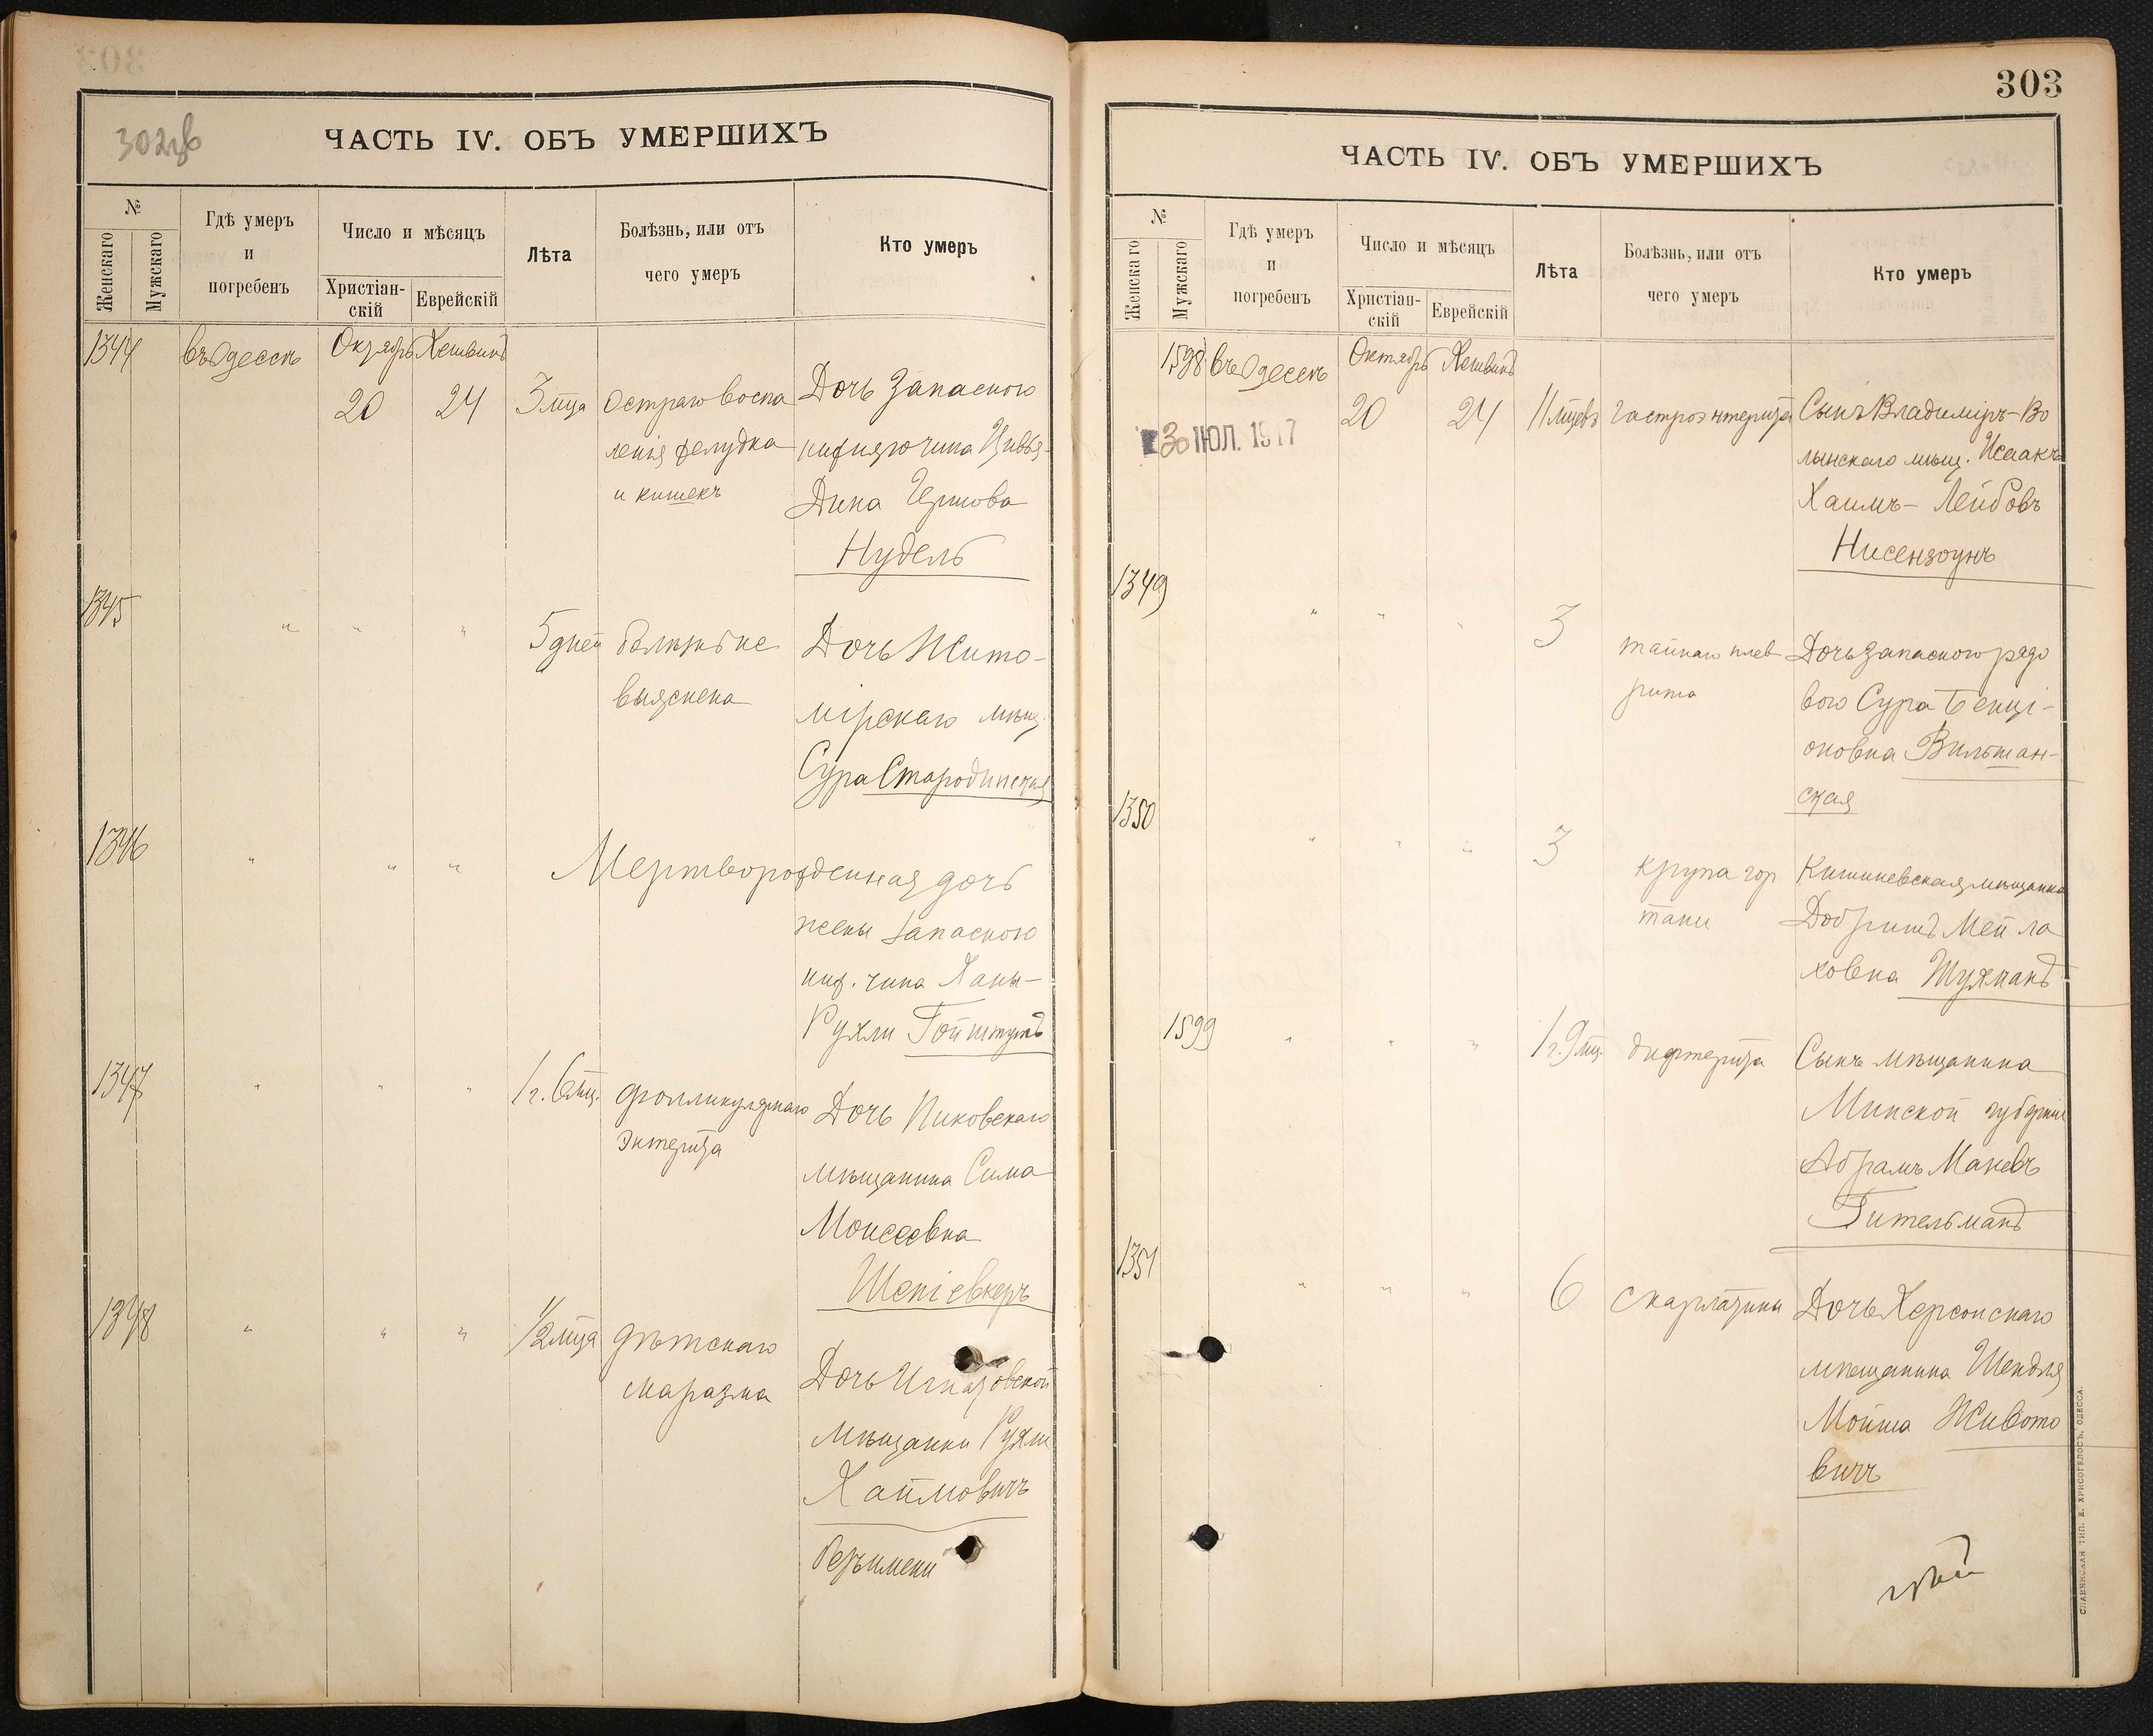 302об
ЧАСТЬ IV. ОБЪ УМЕРШИХЪ
№
Женскаго
Мужскаго
Гдѣ умеръ
и
погребенъ
Число и мѣсяцъ
Христіан-
скій
Еврейскій
Лѣта
Болѣзнь, или отъ
чего умеръ
Кто умеръ
1344
въ Одессѣ
Октябрь
Хешвинъ
20
24
3 мца
Остраго воспа
ленія желудка
и кишекъ
Дочь запасного
нижняго чина
Дина Гершова
Нудель
1345
" " "
5 дней
болѣзнь не
выяснена
Дочь Жито-
мірскаго мѣщ.
Сура Стародинская
1346
" " "
Мертворожденная дочь
жены запасного
ниж. чина Ханы-
Рухли Гойштукъ
1347
" " "
1 г. 6 мц.
фолликулярнаго
энтерита
Дочь Пиковскаго
мѣщанина Сима
Моисеевна
Шепіевкеръ
1348
" " "
1/2 мца
дѣтскаго
маразма
Дочь
мѣщанки Рухли
Хаймовичъ
безъ имени
303
ЧАСТЬ IV. ОБЪ УМЕРШИХЪ
№
Женскаго
Мужскаго
Гдѣ умеръ
и
погребенъ
Число и мѣсяцъ
Христіан-
скій
Еврейскій
Лѣта
Болѣзнь, или отъ
чего умеръ
Кто умеръ
1598
въ Одессѣ
Октябрь
Хешвинъ
20
24
11 мцевъ
гастроэнтерита
Сынъ Владиміръ-Во
лынскаго мѣщ. Исаакъ
Хаимъ- Лейбовъ
Нисензоунъ
30 ІЮЛ. 1917
1349
" " "
3
тайнаго плев
рита
Дочь запасного рядо
вого Сура Бенці-
оновна Вильшан-
ская
1350
" " "
3
крупа гор
тани
Кишиневская мѣщанка
Добришъ Мей ла
ховна Шухманъ
1599
" " "
1 г. 9 мц.
дифтерита
Сынъ мѣщанина
Минской губерніи
Абрамъ Маневъ
Гительманъ
1351
" " "
6
скарлатины
Дочь Херсонскаго
мѣщанина Шендля
Мойша Живото
вичъ
СЛАВЯНСКАЯ ТИП. Е. ХРИСОГЕЛОСЪ, ОДЕССА.